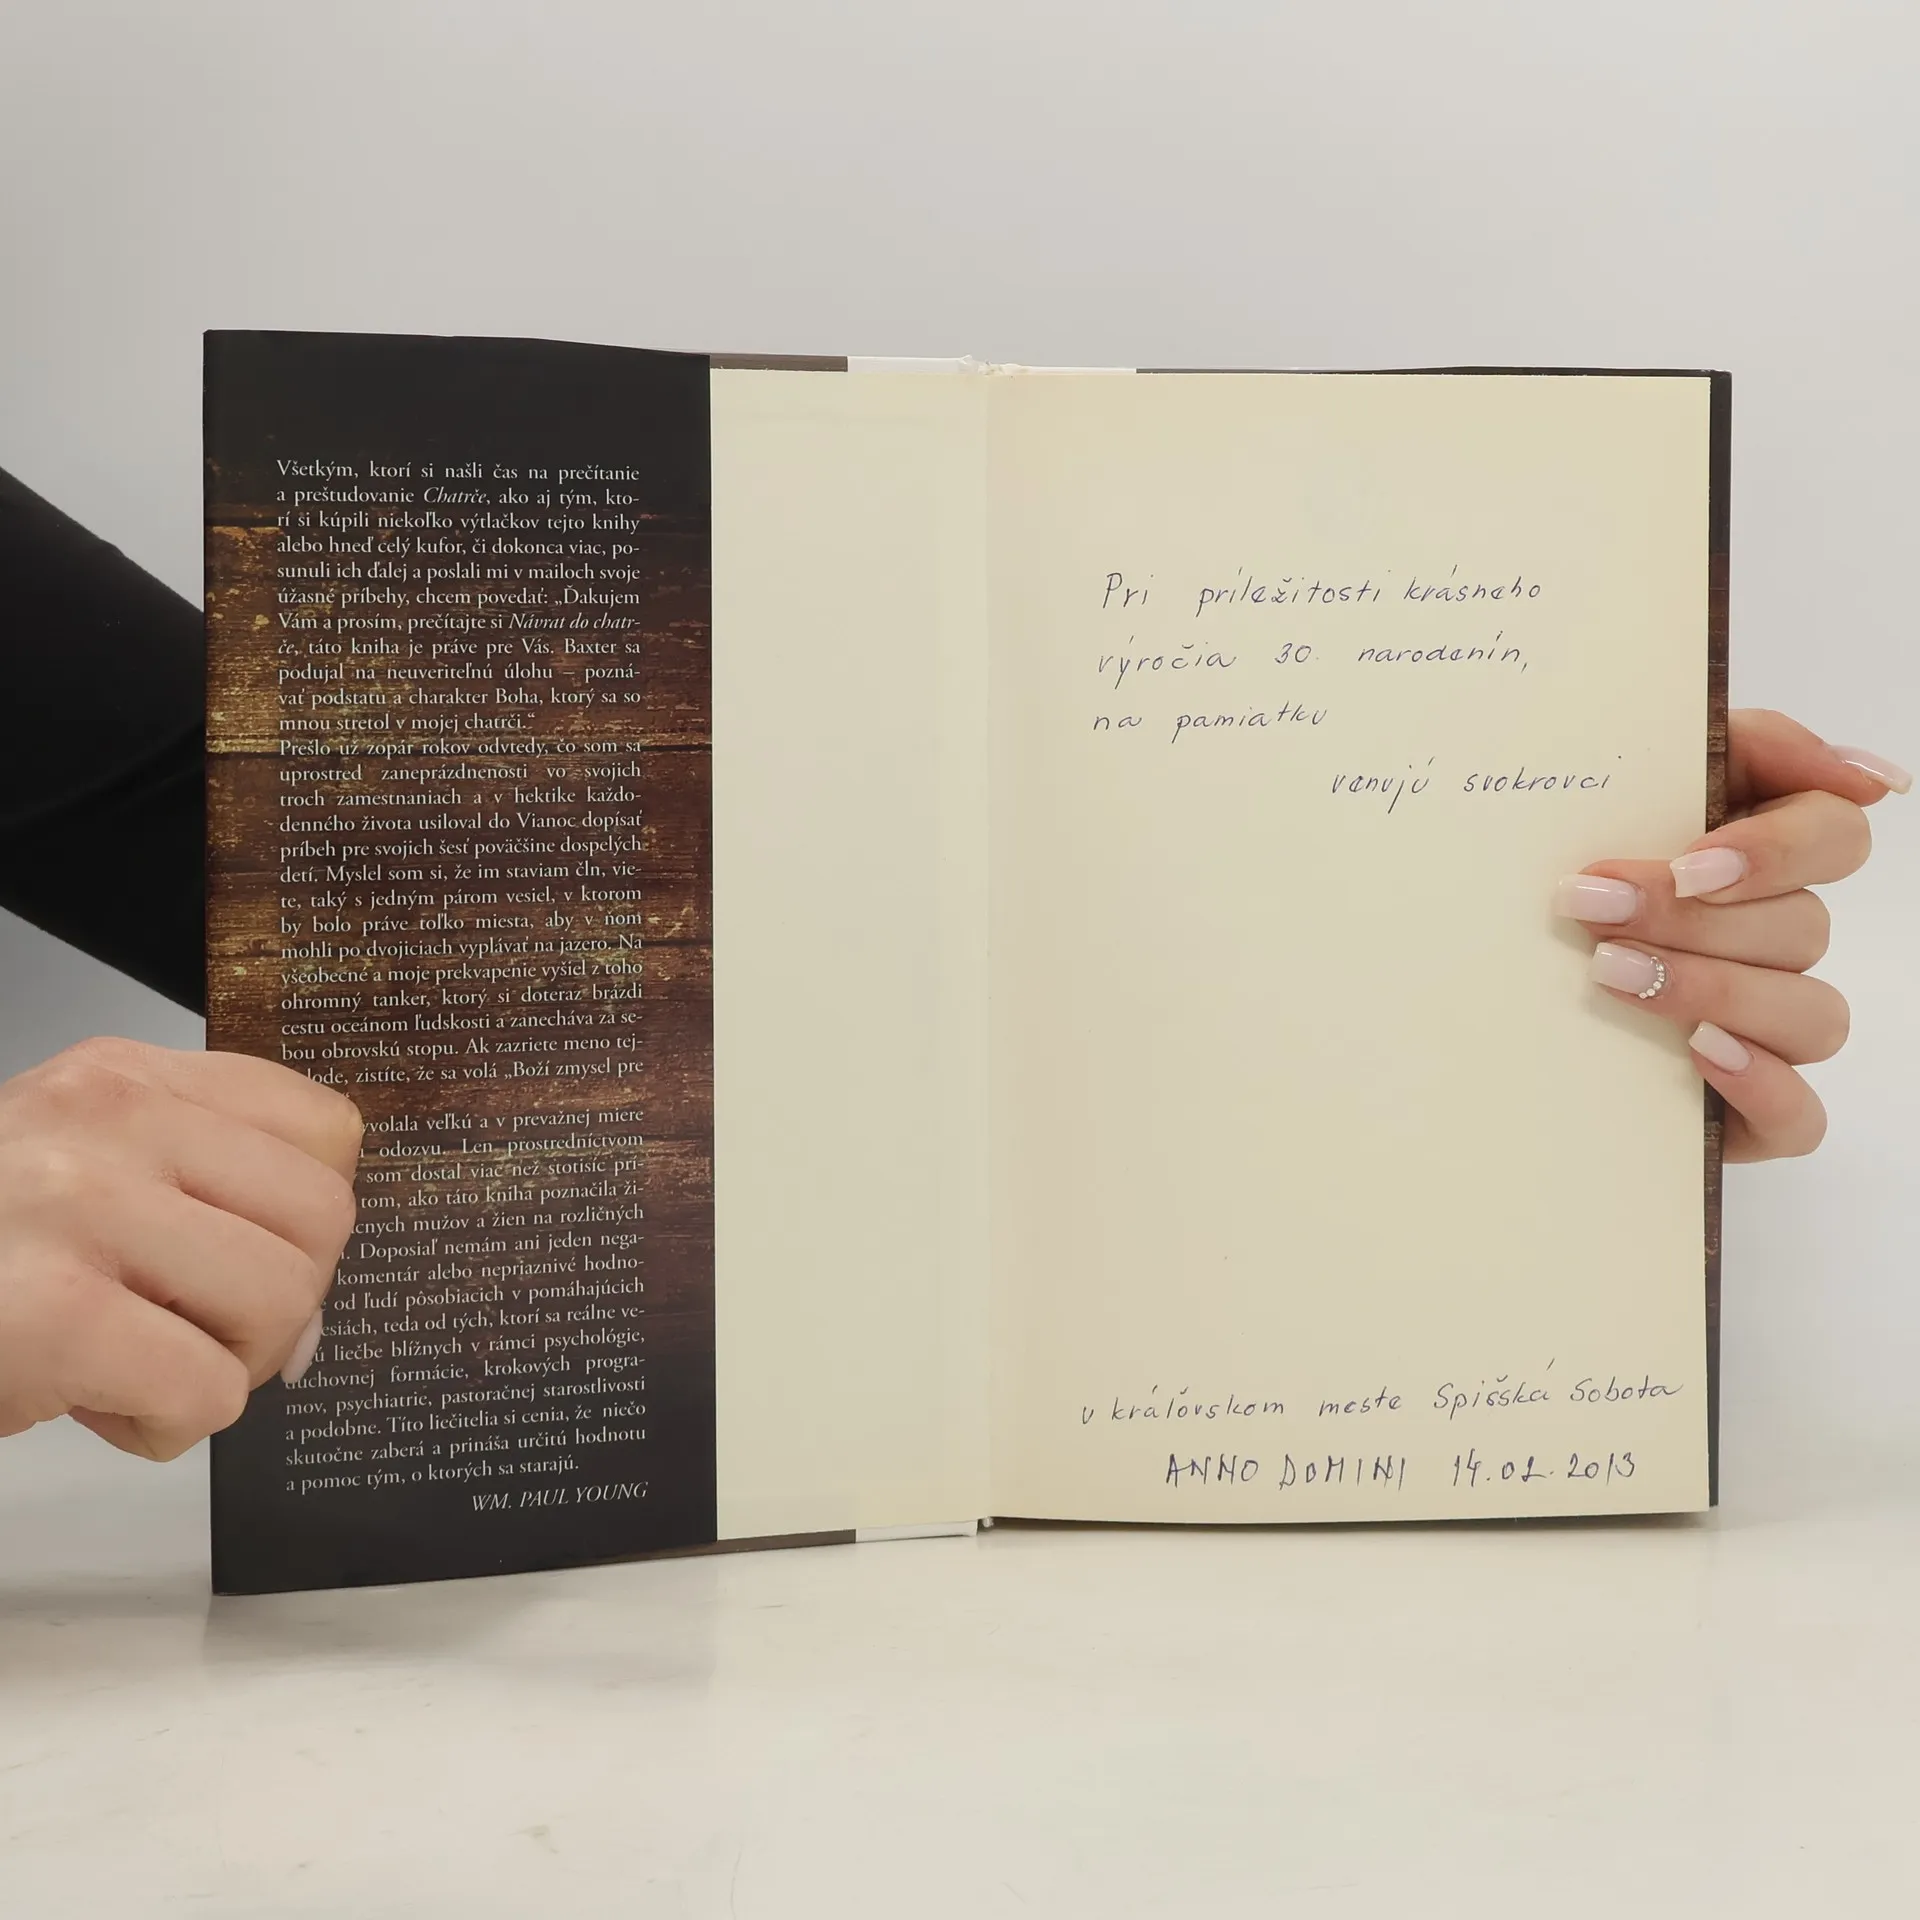 Všetkým, ktorí si našli čas na prečítanie
a preštudovanie Chatrče, ako aj tým, kto-
rí si kúpili niekoľko výtlačkov tejto knihy
alebo hneď celý kufor, či dokonca viac, po-
sunuli ich ďalej a poslali mi v mailoch svoje
úžasné príbehy, chcem povedať: „Ďakujem
Vám a prosím, prečítajte si Návrat do chatr-
če, táto kniha je práve pre Vás. Baxter sa
podujal na neuveriteľnú úlohu – pozná-
vať podstatu a charakter Boha, ktorý sa so
mnou stretol v mojej chatrči.“
Prešlo už zopár rokov odvtedy, čo som sa
uprostred zaneprázdnenosti vo svojich
troch zamestnaniach a v hektike každo-
denného života usiloval do Vianoc dopísať
príbeh pre svojich šesť poväčšine dospelých
detí. Myslel som si, že im staviam čln, vie-
te, taký s jedným párom vesiel, v ktorom
by bolo práve toľko miesta, aby v ňom
mohli po dvojiciach vyplávať na jazero. Na
všeobecné a moje prekvapenie vyšiel z toho
ohromný tanker, ktorý si doteraz brázdi
cestu oceánom ľudskosti a zanecháva za se-
bou obrovskú stopu. Ak zazriete meno tej-
lode, zistíte, že sa volá „Boží zmysel pre
yvolala veľkú a v prevažnej miere
odozvu. Len prostredníctvom
som dostal viac než stotisíc prí-
tom, ako táto kniha poznačila ži-
cnych mužov a žien na rozličných
Doposiaľ nemám ani jeden nega-
komentár alebo nepriaznivé hodno-
od ľudí pôsobiacich v pomáhajúcich
esiách, teda od tých, ktorí sa reálne ve-
ú liečbe blížnych v rámci psychológie,
duchovnej formácie, krokových progra-
mov, psychiatrie, pastoračnej starostlivosti
a podobne. Títo liečitelia si cenia, že niečo
skutočne zaberá a prináša určitú hodnotu
a pomoc tým, o ktorých sa starajú.
WM. PAUL YOUNG
Pri príležitosti krásneho
výročia 30. narodenín,
na pamiatku
venujú svokrovci
v kráľovskom meste Spišská Sobota
ANNO DOMINI 14.02.2013